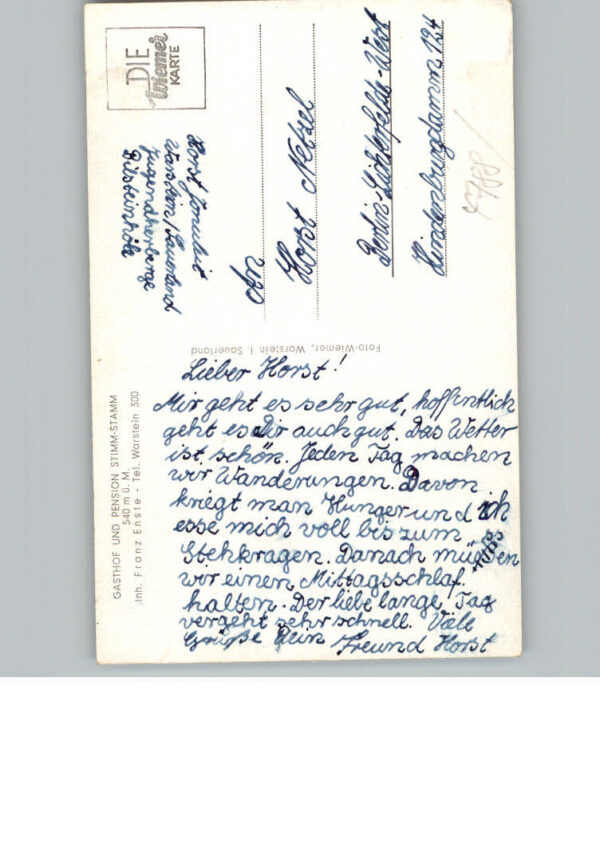 DIE
Wiemer
KARTE
Horst
Warstein/Sauerland
Jugendherberge
Bilsteinhöhle
An
Horst Netzel
Berlin-Lichterfelde-West
Hindenburgdamm 124
Foto-Wiemer, Warstein i. Sauerland
GASTHOF UND PENSION STIMM-STAMM
540 m ü. M.
Inh. Franz Enste - Tel. Warstein 300
Lieber Horst!
Mir geht es sehr gut, hoffentlich
geht es Dir auch gut. Das Wetter
ist schön. Jeden Tag machen
wir Wanderungen. Davon
kriegt man Hunger und ich
esse mich voll bis zum
Stehkragen. Danach müssen
wir einen Mittagsschlaf
halten. Der liebe lange Tag
vergeht sehr schnell. Viele
Grüße Dein Freund Horst